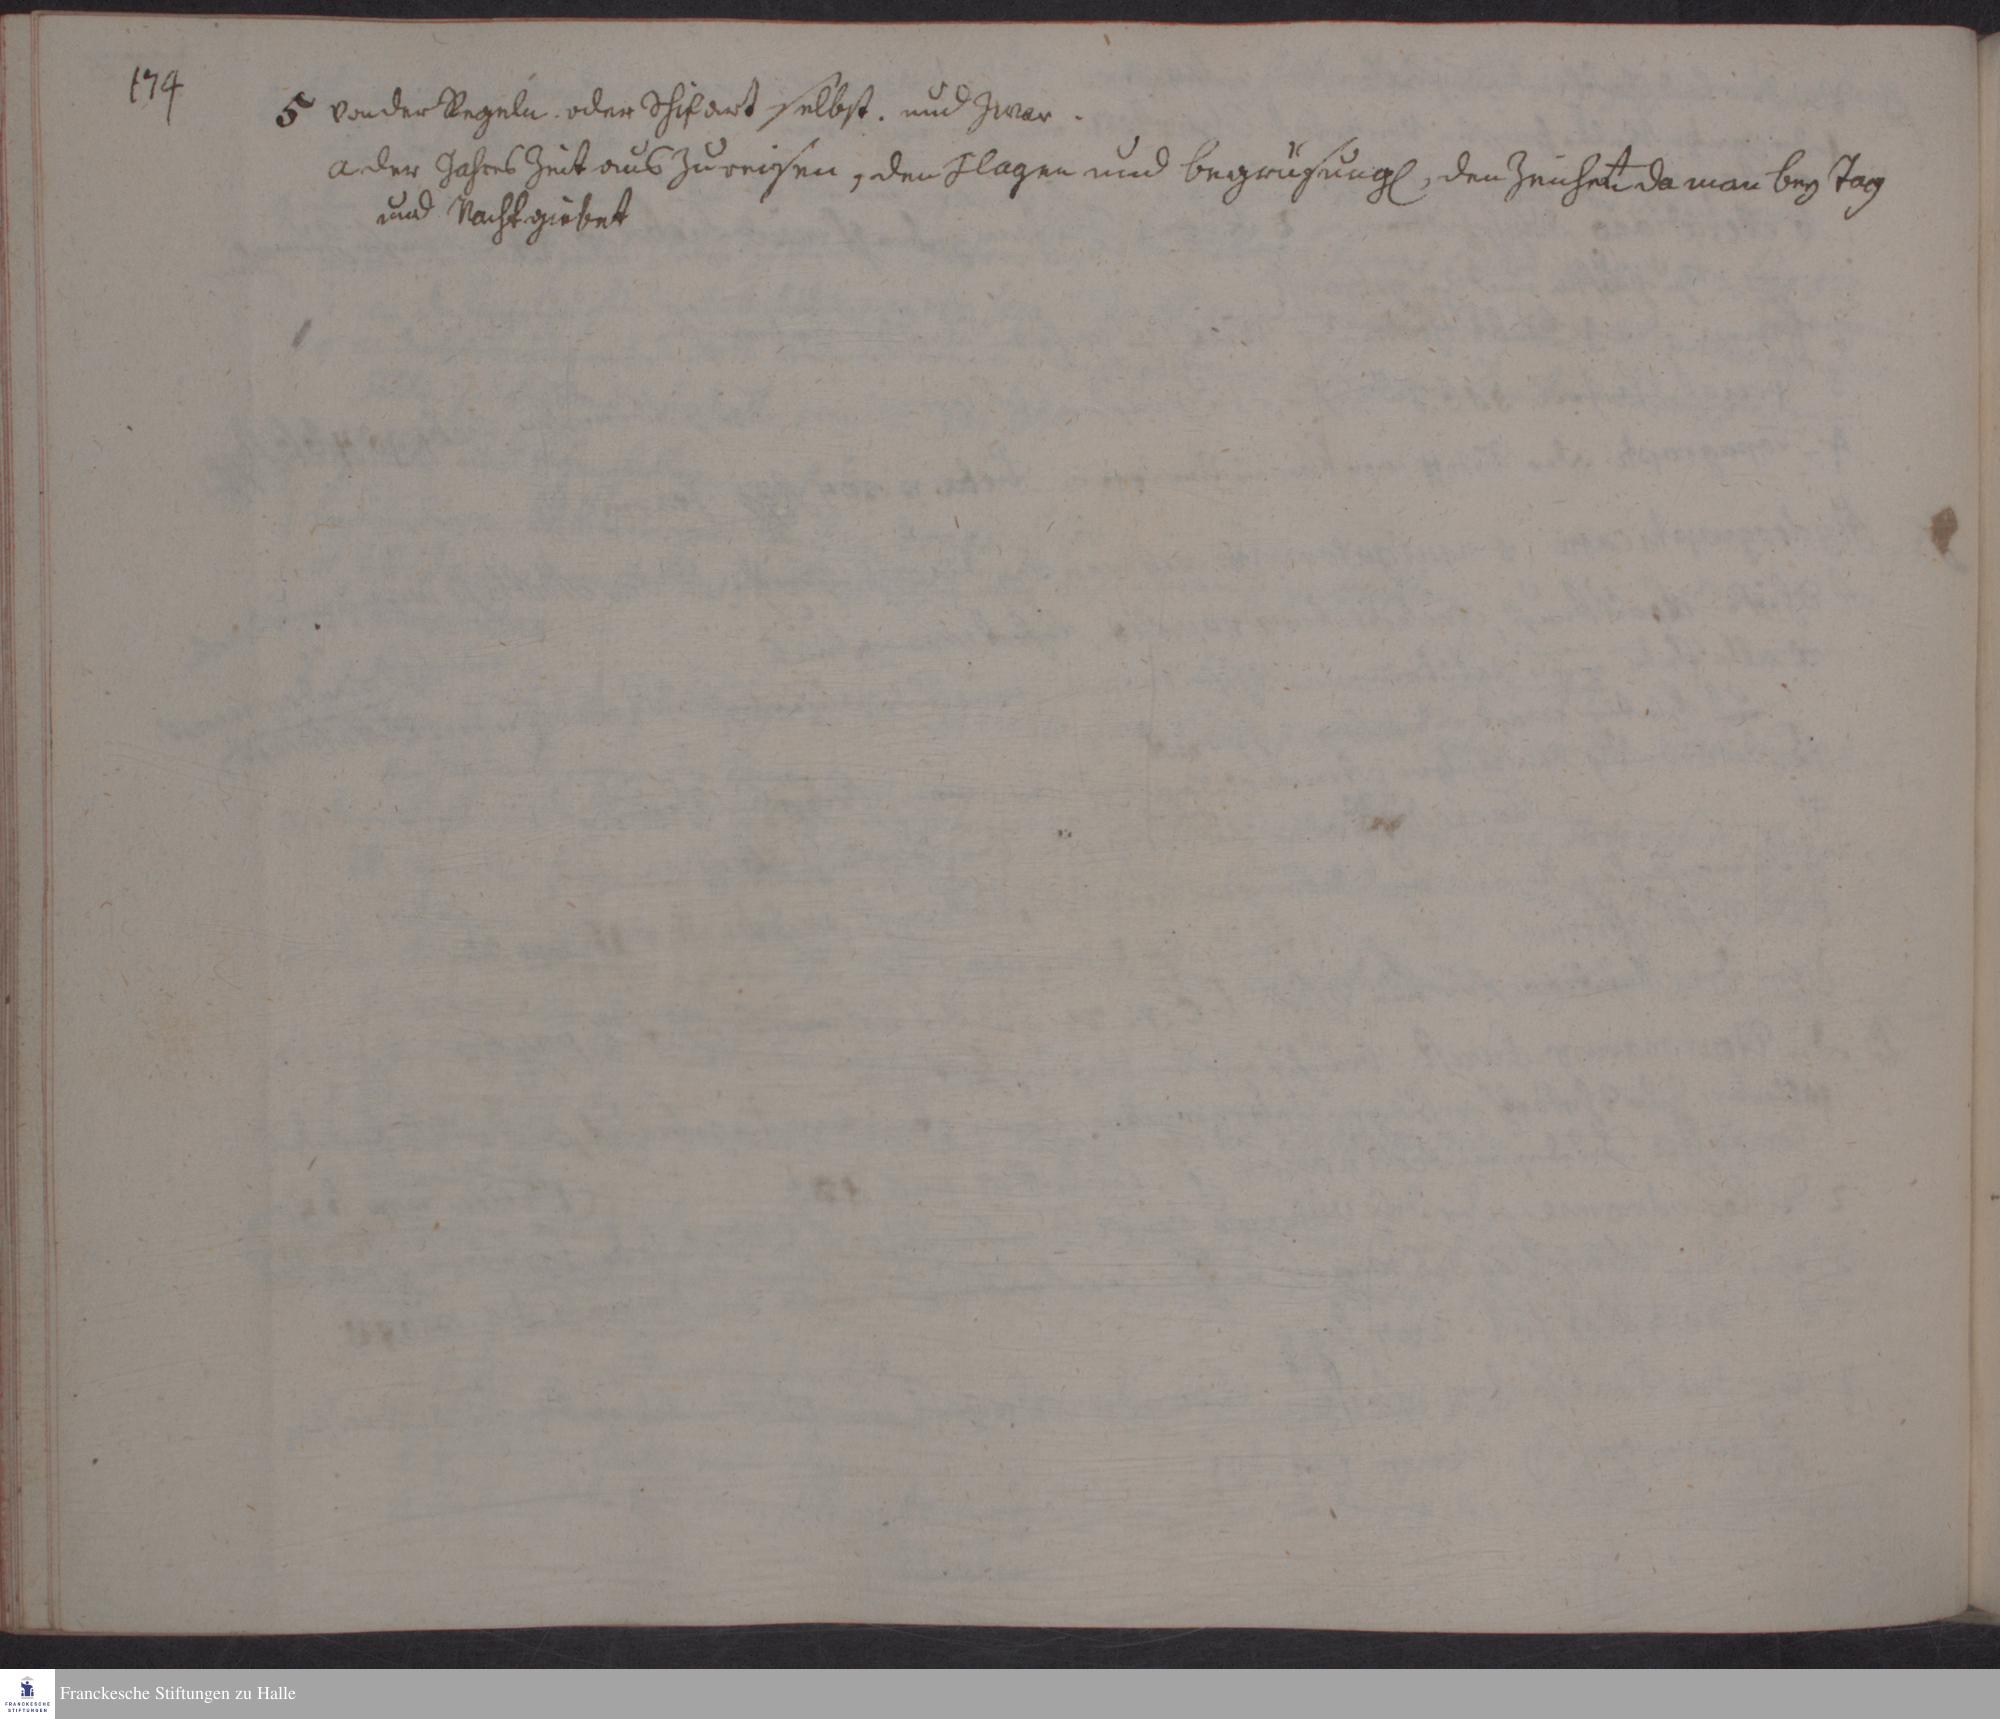 174
5 von der Segeln. oder Schifart selbst. und zwar.
a der Jahres Zeit aus zureisen, den Flagen und begrüsung, den Zeichen da man bey Tag
und Nacht giebet
Franckesche Stiftungen zu Halle
FRANCKESCHE
STIFTUNGEN